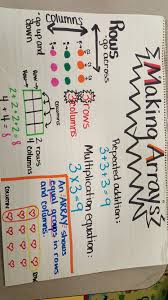 Making Arrays
Rows
- go across
columns
- go up and down
3 rows
3 columns
Repeated addition:
3+3+3=9
Multiplication equation:
3×3=9
Row
columns
2 rows
4 columns
2+2+2+2=8
4+4=8
An ARRAY shows
equal groups in rows
and columns.
COLUMN
ROW